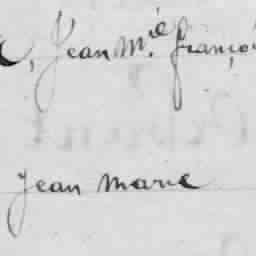 , Jean M.ie françoi
Jean Marie